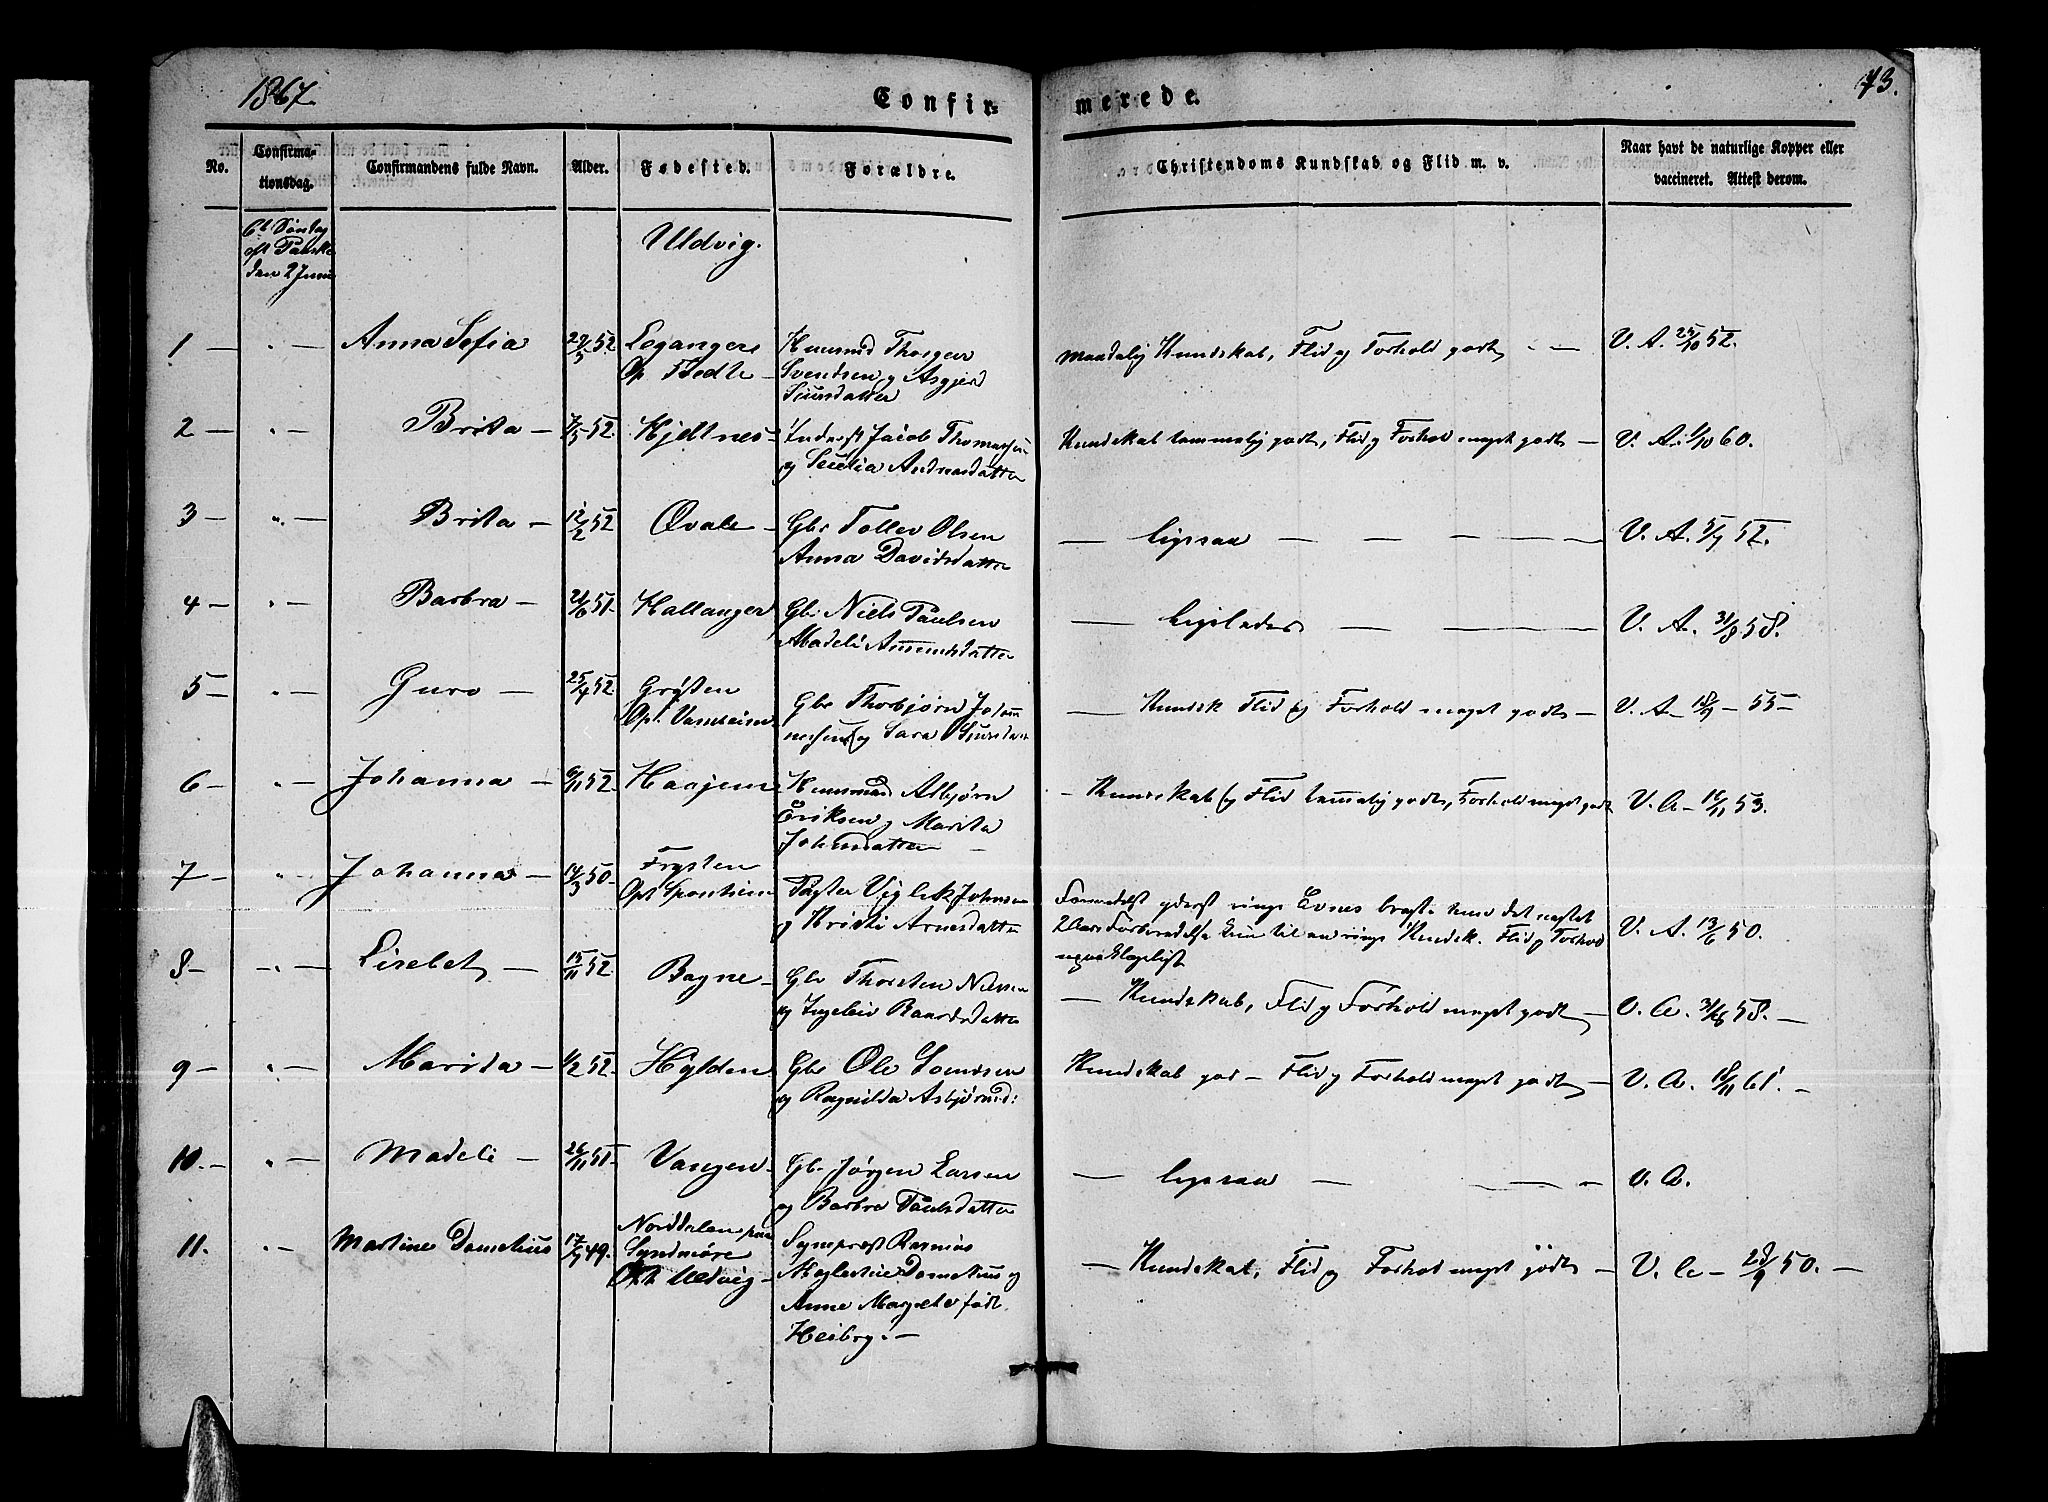 1867.
Confir-
merede.
73.
No.
Confirma-
tionsdag.
Confirmandens fulde Navn.
Alder.
Fødested.
Forældre.
Christendoms Kundskab og Flid m. v.
Naar havt de naturlige Kopper eller
vaccineret. Attest derom.
6t Søndag
eft Paaske
den 2 Juni
Uldvig.
1 — " — Anna Sofia 52 Leganger Huusmd Thorgeir
Svendsen og Asgjerd
Siursdatter
Kundskab, Flid og Forhold godt — V. A. 25/10 52.
2 — " — Brita — 7/5 52. Hjeltnes — Jacob Thomassen
og Secelia Andreasdatter
Kundskab temmelig godt, Flid og Forhold meget godt — V. A. 1/10 60.
3 — " — Brita — 12/2 52 Øvale — Gbr Tollev Olsen
Anna Davidsdatter
— ligesaa — — — — V. A. 5/7 52.
4 — " — Barbra — 21/6 51 Hallanger Gbr Niels Paulsen
Madeli Amundsdatter
— ligeledes — — — V. A. 31/8 58.
5 — " — Guro — 25/4 52 Gr
Opt. Gbr Thorbjørn Johan
nessen og Sara Siursdatter
— Kundsk Flid og Forhold meget godt — V. A — 18/9 — 55 —
6 — " — Johanna — 6/11 52. Haajem Huusmand Asbjørn
Eriksen og Marita
Johnsdatter —
— Kundskab og Flid temmelig godt, Forhold meget godt V. A — 16/11 53.
7 — " — Johanna — 14/3 50 —
Opt Spaanheim Viglek Johnsen
og Kristi Arnesdatter
Formedelst yderst ringe Evner bragte hun det
2 Aars Forberedelse kun til en ringe Kundsk. Flid og Forhold
upaaklageligt
V. A. 13/6 50.
8 — " — Liselet — 15/11 52 Bagne — Gbr Thorsten Nilsen
og Ingeleiv Baardsdatter
— Kundskab, Flid og Forhold meget godt — V. A. 31/8 58. —
9 — " — Marita — 1/2 52 Hylden Gbr Ole
og Ragnilda Asbjørnsd:
Kundskab god — Flid og Forhold meget godt — V. A. 18/11 61. —
10. — " — Madeli — 26/11 51 Vangen — Gbr Jørgen Larsen
og Barbra Paulsdatter
— ligesaa — — — V. A.
11. " — Martine Dometius 17/9 49. Norddalen paa
Syndmøre
Opt Uldvig — Sogneprest Rasmus
Møglestue Dometius og
Anne Margrete født
Heiberg. —
— Kundskab, Flid og Forhold meget godt — V. A — 28/9 50. —